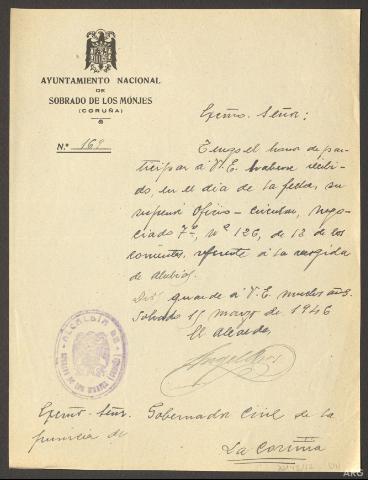 AYUNTAMIENTO NACIONAL
DE
SOBRADO DE LOS MONJES
(CORUÑA)
N.º 162
Excmo. Señor:
Tengo el honor de par-
ticipar a V.E. haberse recibi-
do, en el día de la fecha, su
Oficio-Circular, Nego-
ciado 7º, nº 126, de 13 de los
corrientes, referente a la recogida
de alubias.
Dios guarde a V.E. muchos años.
Sobrado 15 marzo de 1946
El Alcalde,
Excmo. Señor Gobernador Civil de la
provincia de
La Coruña
ALCALDIA DE
ARG